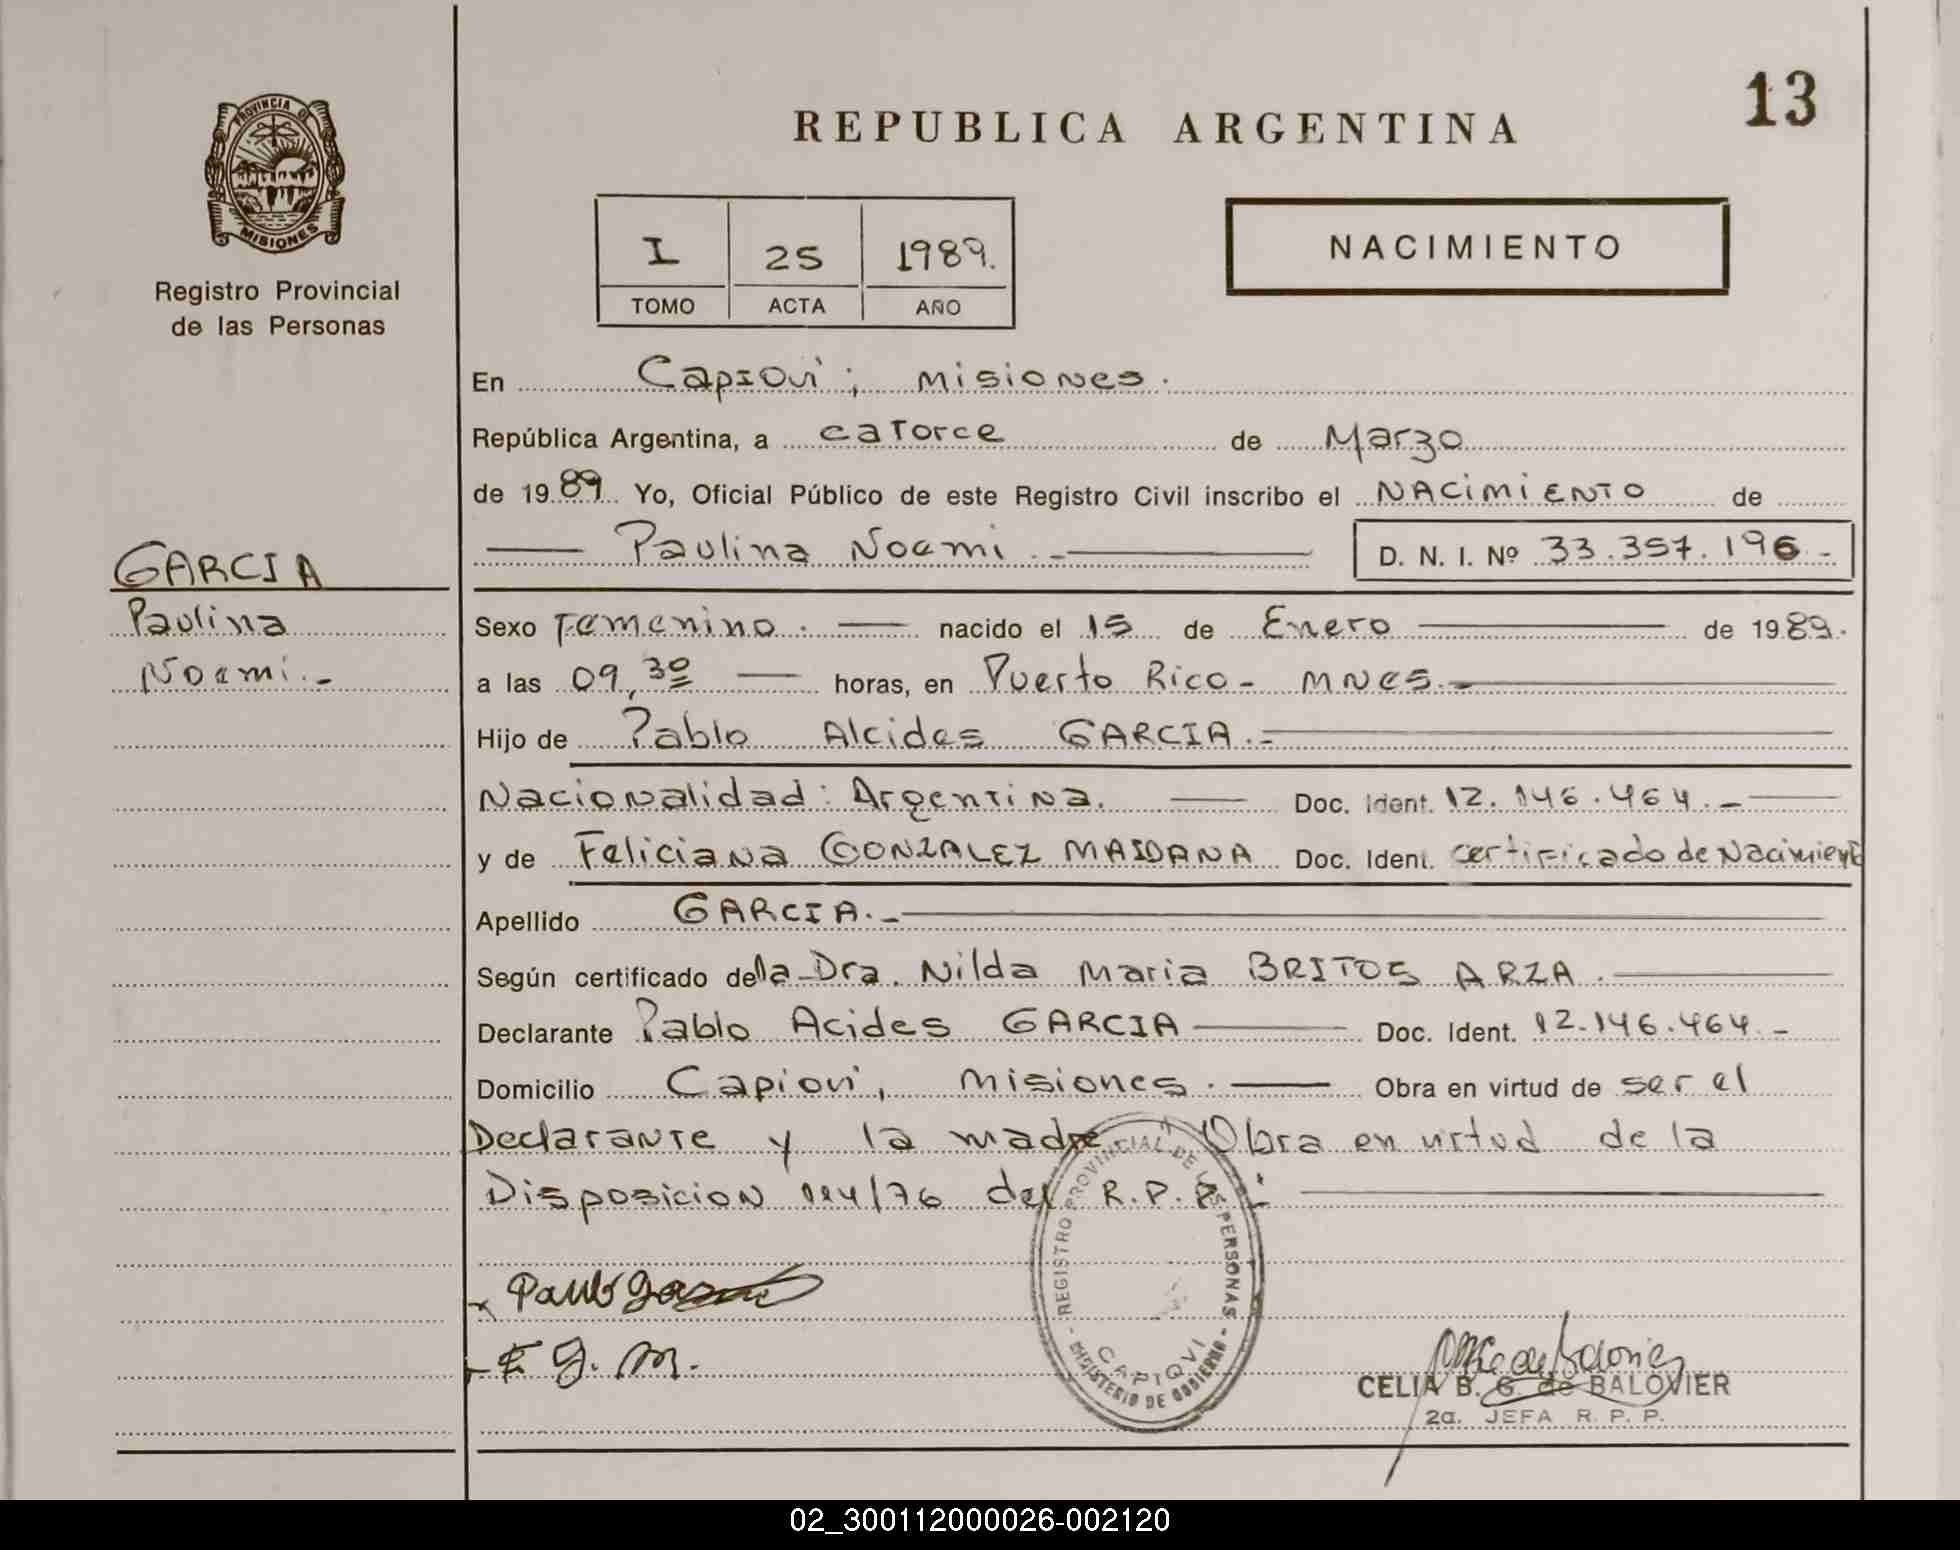 13
PROVINCIA DE
MISIONES
Registro Provincial
de las Personas
REPUBLICA ARGENTINA
I 25 1989.
TOMO ACTA AÑO
NACIMIENTO
En Capiovi; Misiones.
República Argentina, a catorce de Marzo
de 1989 Yo, Oficial Público de este Registro Civil inscribo el NACIMIENTO de
Paulina Noemi.- D. N. I. Nº 33.357.196-
GARCIA
Paulina
Noemi.-
Sexo Femenino. nacido el 15 de Enero de 1989.
a las 09,30 horas, en Puerto Rico - MNES.-
Hijo de Pablo Alcides GARCIA.-
Nacionalidad: Argentina. Doc. Ident. 12.146.464.-
y de Feliciana GONZALEZ MAIDANA Doc. Ident. certificado de Nacimiento
Apellido GARCIA.-
Según certificado de la Dra. Nilda Maria BRITOS ARZA.
Declarante Pablo Acides GARCIA Doc. Ident. 12.146.464.-
Domicilio Capiovi, Misiones. Obra en virtud de ser el
Declarante y la madre, Obra en virtud de la
Disposicion 114/76 del R.P.P.-
Pablo Garcia
F G. M.
REGISTRO PROVINCIAL DE LAS PERSONAS
CAPIOVI
MINISTERIO DE GOBIERNO
CELIA B. G. de BALOVIER
2a. JEFA R. P. P.
02_300112000026-002120